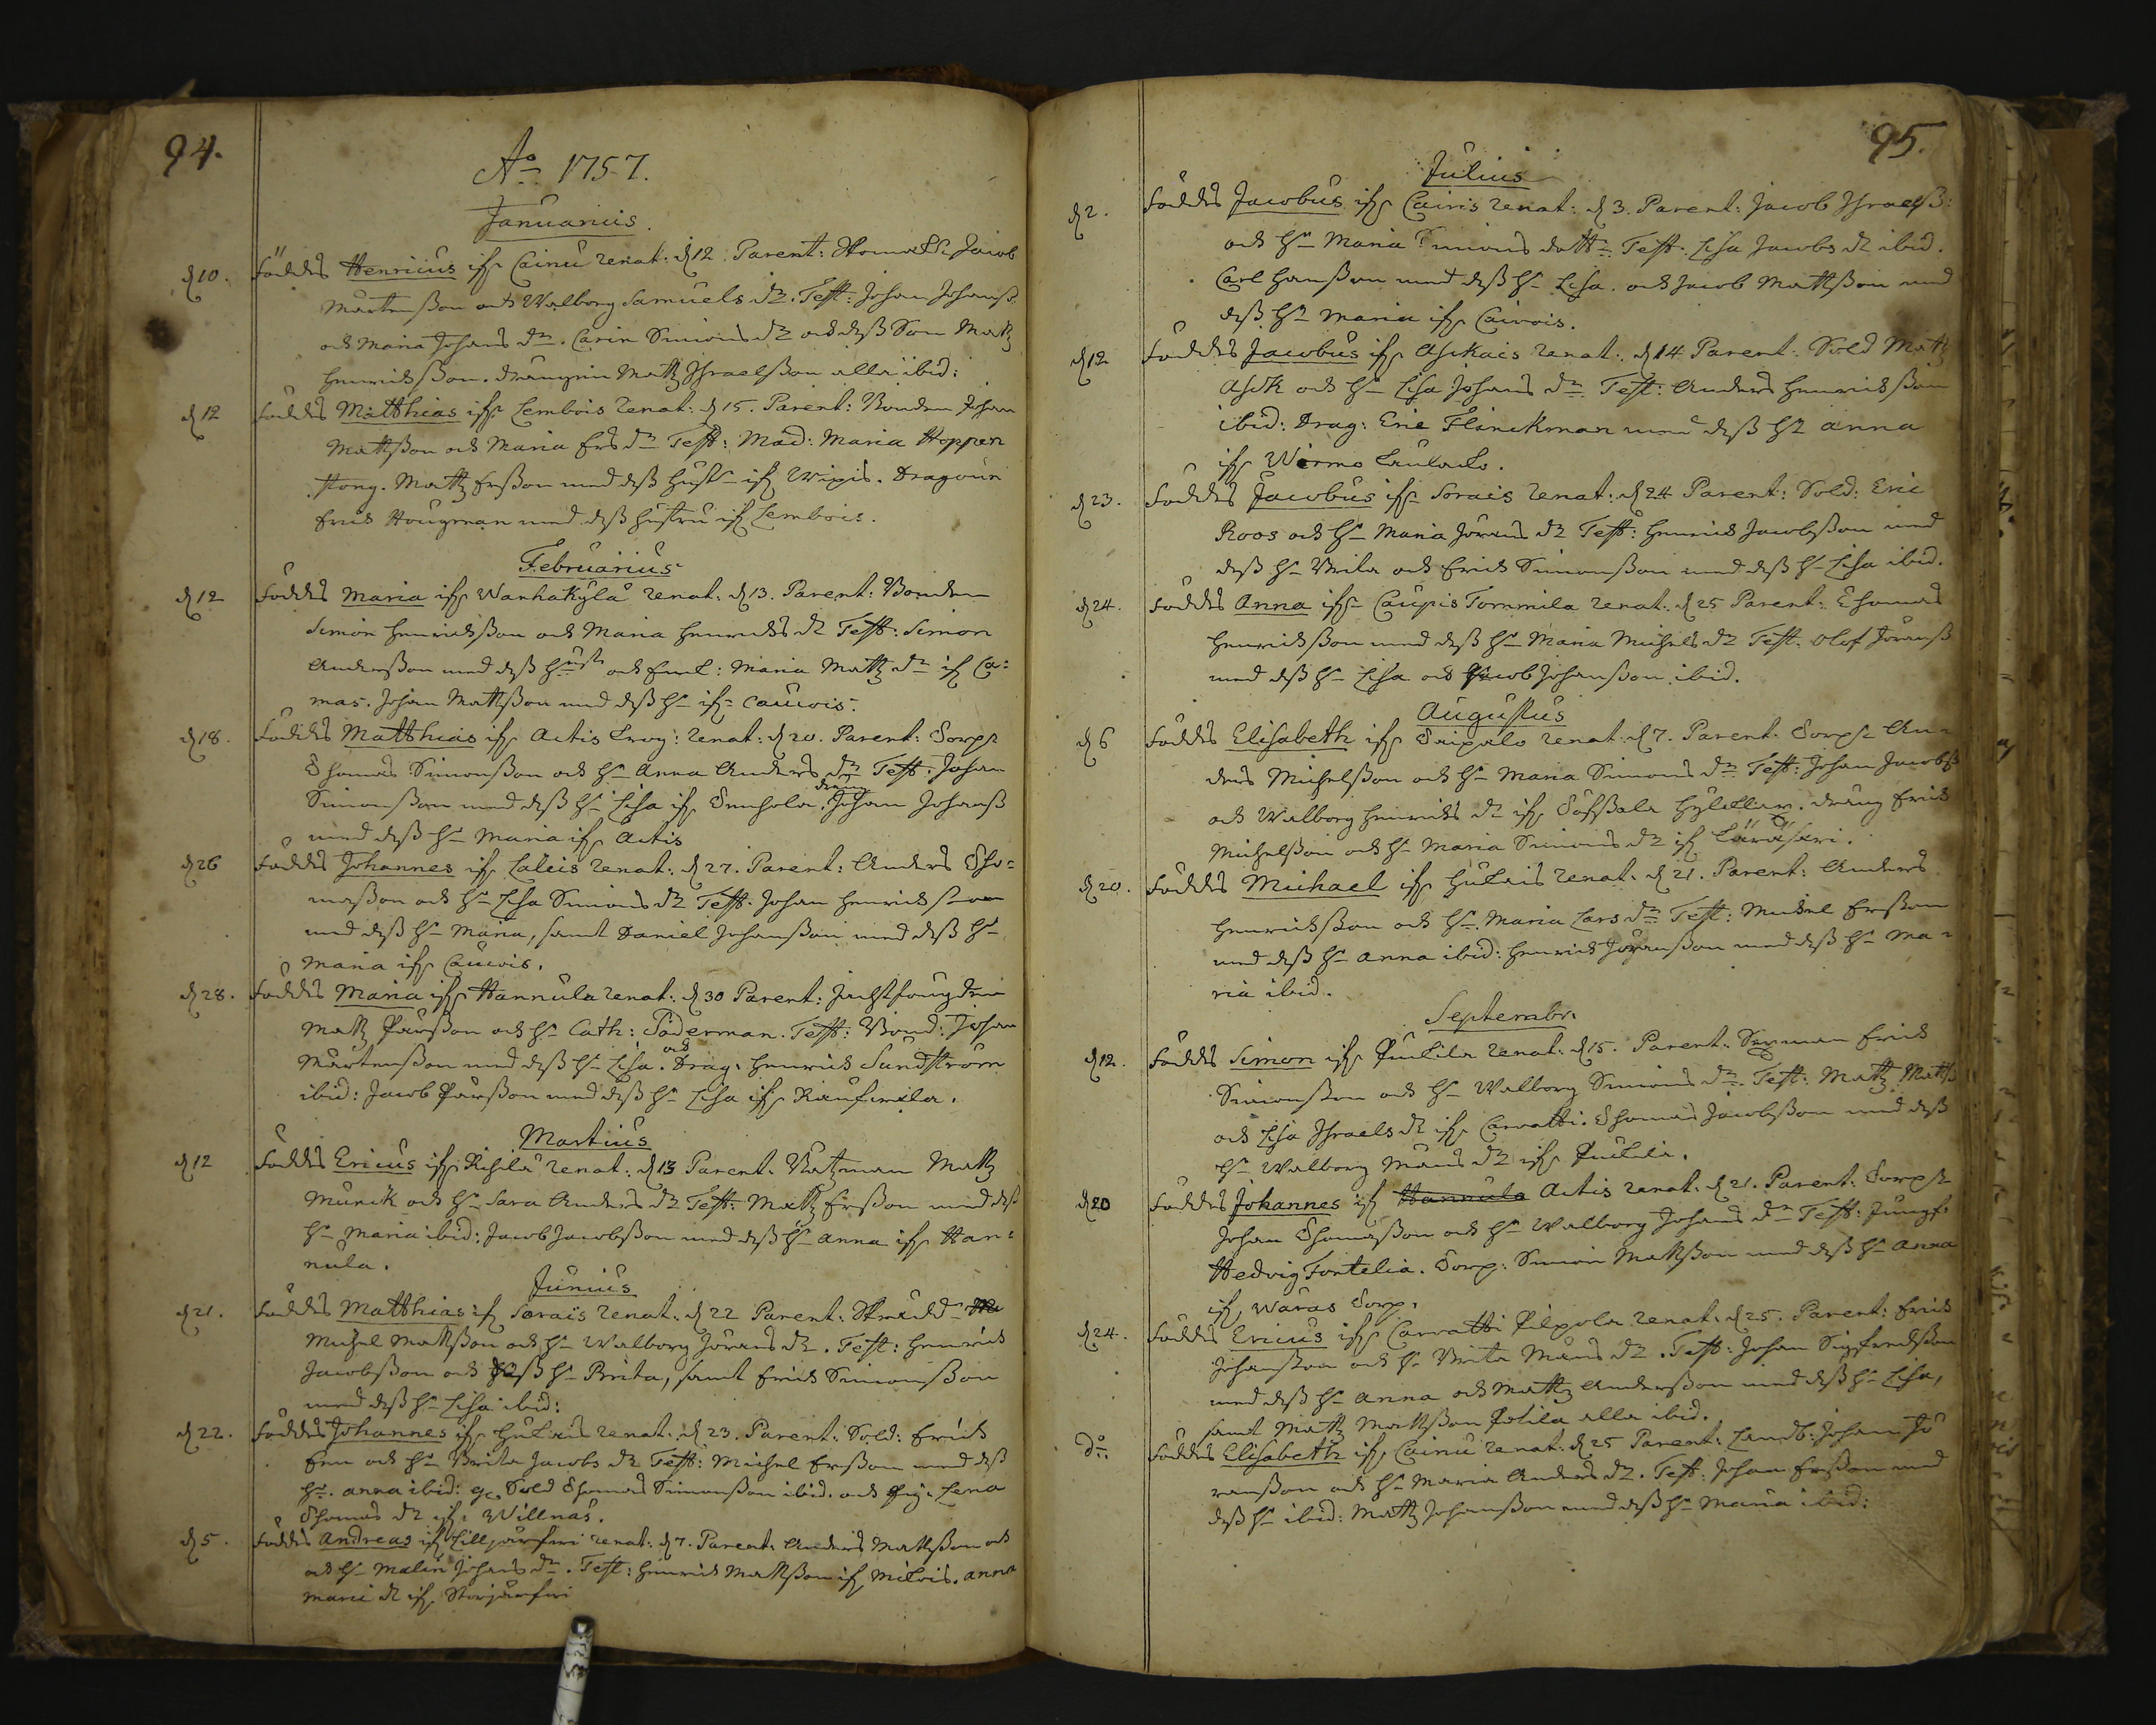 94.
Ao 1757.
Januarius.
d 10. Föddes Henricus ifr Cainu renat: d 12. Parent: Jacob
Mårtensson och Walborg Samuels dr. Test: Johan Johanss.
och Maria Johans dr. Carin Simons dr och dess Son Matz
Henricksson. drängen Matz Israelsson alla ibid:
d 12 Föddes Matthias ifr Lembois renat: d 15. Parent: Bonden Johan
Mattsson och Maria Ers dr Test: Mad: Maria Hoppen
stong. Matz Ersson med dess Hustr ifr Wipis. Dragoun
Erich Hougman med dess hustru ifr Lembois.
Februarius
d 12 Föddes Maria ifr Wanhakylå renat: d 13. Parent: Bonden
Simon Henricksson och Maria Henrichs dr Test: Simon
Andersson med dess Hust och Enk: Maria Matz dr ifr Ca-
mas. Johan Mattsson med dess H ifr Cauvois.
d 18. Föddes Matthias ifr Actis renat: d 20. Parent: Torp
Thomas Simonsson och H Anna Anders dr Test: Johan
Simonsson med dess H Lisa ifr dreng Johan Johanss
med dess H Maria ifr Actis
d 26 Föddes Johannes ifr Laleis renat: d 27. Parent: Anders Tho-
masson och H Lisa Simons dr Test: Johan Henricksson
med dess H Maria, samt Daniel Johansson med dess H
Maria ifr Cauvois.
d 28. Föddes Maria ifr Hannula renat: d 30 Parent:
Matz Pärsson och H Cath: Söderman. Test: Bond: Johan
Mårtensson med dess H Lisa. och Drag: Henrich Sundström
ibid: Jacob Pärsson med dess H Lisa ifr
Martius
d 12 Föddes Ericus ifr Rihilå renat: d 13 Parent: Båtzman Matz
Munck och H Sara Anders dr Test: Matz Ersson med dess
H Maria ibid: Jacob Jacobsson med dess H Anna ifr Han-
nula.
Junius
d 21. Föddes Matthias ifr Sorais renat: d 22 Parent:
Michel Mattsson och H Walborg Jörans dr. Test: Henrich
Jacobsson och dess H Brita, samt Erich Simonsson
med dess H Lisa ibid:
d 22. Föddes Johannes ifr Hutais renat: d 23. Parent: Sold: Erich
Een och H Brita Jacobs dr Test: Michel Ersson med dess
H Anna ibid: Sold Thomas Simonsson ibid. och Pig: Lena
Thomas dr ifr Willnäs.
d 5. Föddes Andreas ifr Lilljärfwi renat: d 7. Parent: Anders Mattsson och
och H Malin Johans dr. Test: Henrich Mattsson ifr Anna
Marci dr ifr Storjärfwi
95.
Julius
d 2. Föddes Jacobus ifr renat: d 3. Parent: Jacob Israelss:
och H Maria Simons dott Test: Lisa Jacobs dr ibid.
Carl Hansson med dess H Lisa. och Jacob Mattsson med
dess H Maria ifr Caivois.
d 12 Föddes Jacobus ifr Asckais renat: d 14 Parent: Sold Matz
Asck och H Lisa Johans dr Test: Anders Henricksson
ibid: Drag: Eric Flinckman med dess H Anna
ifr Wirmo
d 23. Föddes Jacobus ifr Sorais renat: d 24 Parent: Sold: Eric
Roos och H Maria Jörans dr Test: Henrich Jacobsson med
dess H Brita och Erich Simonsson med dess H Lisa ibid.
d 24. Föddes Anna ifr Caupis Tommila renat: d 25 Parent: Thomas
Henricksson med dess H Maria Michels dr Test: Olof Jöranss
med dess H Lisa och Jacob Johansson ibid.
Augustus
d 6 Föddes Elisabeth ifr Taipalo renat: d 7. Parent: Torp An-
ders Michelsson och H Maria Simons dr Test: Johan Jacobss
och Walborg Henrichs dr ifr dräng Erich
Michelsson och H Maria Simons dr ifr
d 20. Föddes Michael ifr Hutais renat: d 21. Parent: Anders
Henricksson och H Maria Lars dr Test: Michel Ersson
med dess H Anna ibid: Henrich Jöransson med dess H Ma-
ria ibid.
Septembr.
d 12. Föddes Simon ifr renat: d 15. Parent: Erich
Simonsson och H Walborg Simons dr. Test: Matz Matts
och Lisa Israels dr ifr Carvatti. Thomas Jacobsson med dess
H Walborg Måns dr ifr
d 20 Föddes Johannes ifr Hannula Actis renat: d 21. Parent: Torp
Johan Thomasson och H Walborg Johans dr Test: Jungf:
Hedvig Fortelia. Torp: Simon Mattsson med dess H Anna
ifr Waras Torp.
d 24. Föddes Ericus ifr Carvatti Pilpola renat: d 25. Parent: Erich
Johansson och H Brita Måns dr. Test: Johan Sigfredsson
med dess H Anna och Matz Andersson med dess H Lisa,
samt Matz Mattsson alla ibid.
do Föddes Elisabeth ifr Cainu renat: d 25 Parent: Landb: Johan Jö
ransson och H Maria Anders dr. Test: Johan Ersson med
dess H ibid: Matz Johansson med dess H Maria ibid: